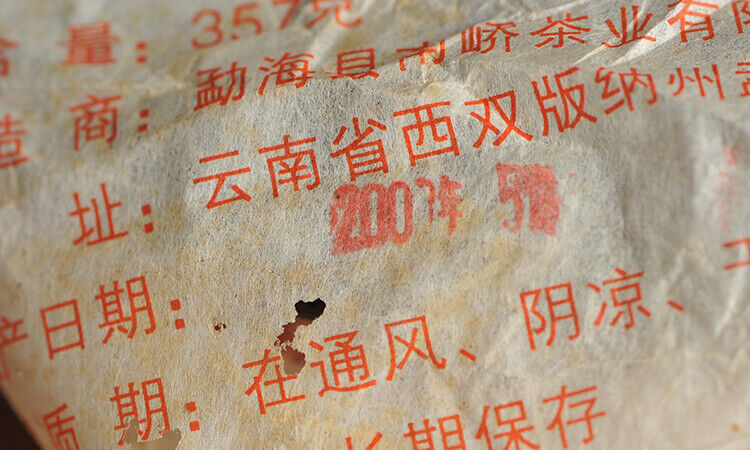 含量：357克
造商：勐海县南峤茶业有限
址：云南省西双版纳州
2007年 5
产日期：
质期：在通风、阴凉、
长期保存